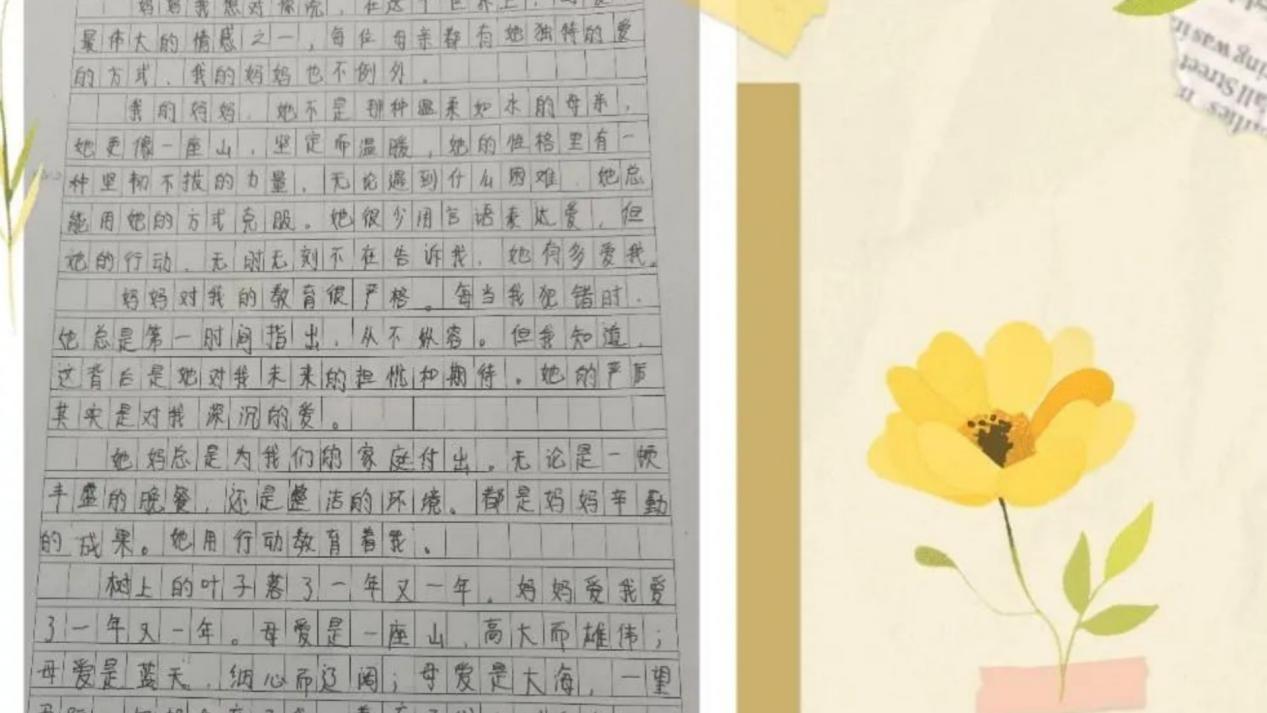 妈妈我想对你说，在这个世界上，
最伟大的情感之一，每位母亲都有她独特的爱
的方式，我的妈妈也不例外。
我的妈妈，她不是那种温柔如水的母亲，
她更像一座山，坚定而温暖，她的性格里有一
种坚韧不拔的力量，无论遇到什么困难，她总
能用她的方式克服。她很少用言语表达爱，但
她的行动，无时无刻不在告诉我，她有多爱我。
妈妈对我的教育很严格。每当我犯错时，
她总是第一时间指出，从不纵容。但我知道，
这背后是她对我未来的担忧和期待。她的严厉
其实是对我深沉的爱。
她妈总是为我们的家庭付出。无论是一顿
丰盛的晚餐，还是整洁的环境。都是妈妈辛勤
的成果。她用行动教育着我。
树上的叶子落了一年又一年。妈妈爱我爱
了一年又一年。母爱是一座山，高大而雄伟；
母爱是蓝天，细心而辽阔；母爱是大海，一望
all Street